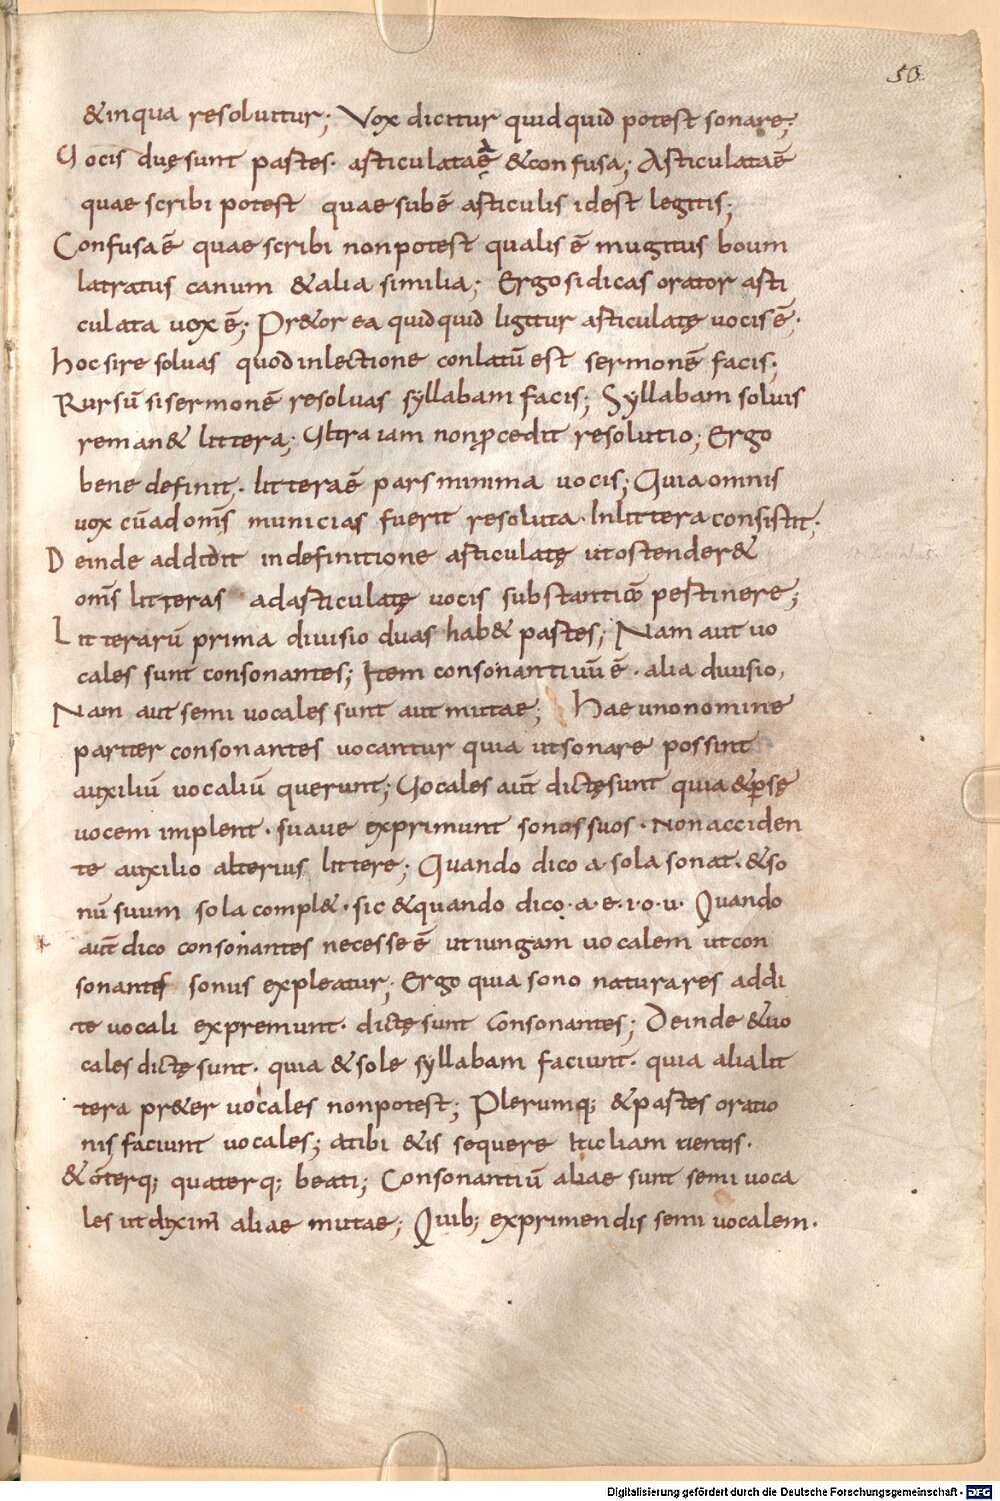 50
&inqua resoluitur; Vox dicitur quidquid potest sonare;
Vocis duę sunt partes· articulataē &confusa; Articulataē
quae scribi potest quae subē articulis idest legitis;
Confusaē quae scribi nonpotest qualis ē mugitus boum
latratus canum &alia similia; Ergo sidicas orator arti
culata uox ē; Pr&or ea quidquid ligitur articulatę uocis ē·
hoc si re soluas quod inlectione conlatū est sermonē facis;
Rursū si sermonē resoluas syllabam facis; Syllabam soluis
reman& littera; Vltra iam non ꝓcedit resolutio; Ergo
bene definit· litteraē pars minima uocis; Quia omnis
uox cū ad om̄s municias fuerit resoluta· Inlittera consistit;
Deinde addidit indefinitione articulatę ut ostender&
om̄s litteras ad articulatę uocis substantiā pertinere;
Litterarū prima diuisio duas hab& partes; Nam aut uo
cales sunt consonantes; Item consonantiuū ē· alia diuisio,
Nam aut semi uocales sunt aut mutae; Hae uno nomine
pariter consonantes uocantur quia ut sonare possint
auxiliū uocaliū querunt; Vocales aūt dictę sunt quia &ꝑse
uocem implent· suaue exprimunt sonos suos· Non acciden
te auxilio alterius littere; Quando dico a· sola sonat· &so
nū suum sola compl&· sic &quando dico· a· e· i· o· u· Quando
aūt dico consonantes necesse ē ut iungam uocalem ut con
sonantes sonus expleatur; Ergo quia sono naturares addi
te uocali expremunt· dictę sunt Consonantes; Deinde &uo
cales dictę sunt· quia &sole syllabam faciunt· quia alia lit
tera pr&er uocales nonpotest; Plerumq; &partes oratio
nis faciunt uocales; ut ibi &is sequere Iticliam uentis·
&ōterq; quaterq; beati; Consonantiū aliae sunt semi uoca
les ut diximꝰ aliae mutae; Quib; exprimendis semi uocalem·
Digitalisierung gefördert durch die Deutsche Forschungsgemeinschaft · DFG